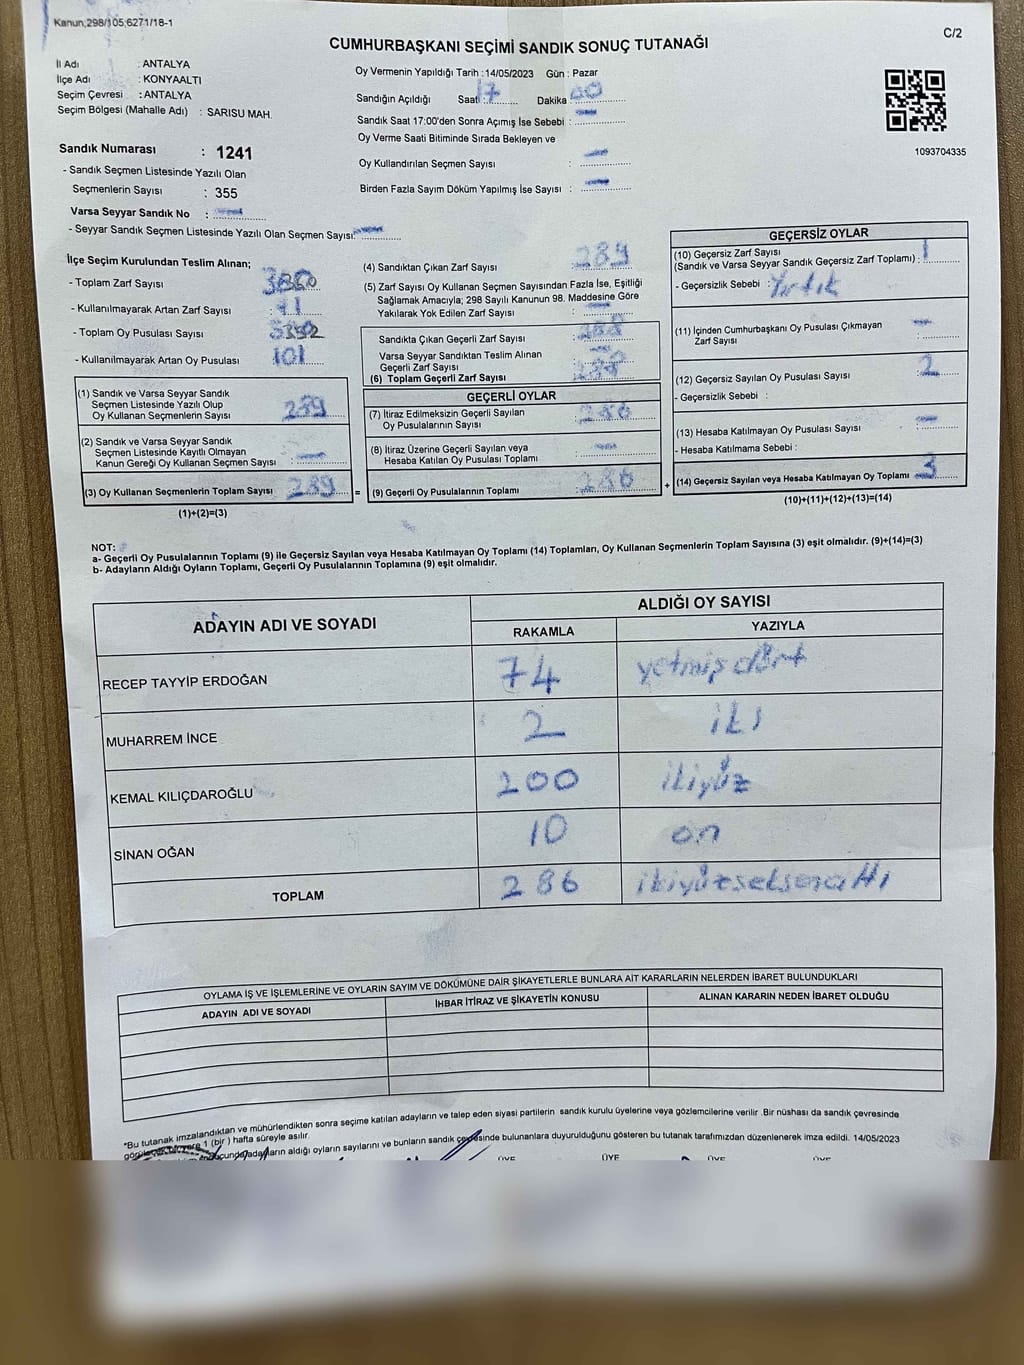 Kanun;298/105;6271/18-1
C/2
CUMHURBAŞKANI SEÇİMİ SANDIK SONUÇ TUTANAĞI
İl Adı : ANTALYA
İlçe Adı : KONYAALTI
Seçim Çevresi : ANTALYA
Seçim Bölgesi (Mahalle Adı) : SARISU MAH.
Sandık Numarası : 1241
- Sandık Seçmen Listesinde Yazılı Olan
Seçmenlerin Sayısı : 355
Varsa Seyyar Sandık No :
- Seyyar Sandık Seçmen Listesinde Yazılı Olan Seçmen Sayısı:
Oy Vermenin Yapıldığı Tarih :14/05/2023 Gün : Pazar
Sandığın Açıldığı Saati : 17 Dakika 00
Sandık Saat 17:00'den Sonra Açımış İse Sebebi :
Oy Verme Saati Bitiminde Sırada Bekleyen ve
Oy Kullandırılan Seçmen Sayısı :
Birden Fazla Sayım Döküm Yapılmış İse Sayısı :
1093704335
İlçe Seçim Kurulundan Teslim Alınan;
- Toplam Zarf Sayısı
- Kullanılmayarak Artan Zarf Sayısı :
- Toplam Oy Pusulası Sayısı
- Kullanılmayarak Artan Oy Pusulası 101
(1) Sandık ve Varsa Seyyar Sandık
Seçmen Listesinde Yazılı Olup
Oy Kullanan Seçmenlerin Sayısı 289
(2) Sandık ve Varsa Seyyar Sandık
Seçmen Listesinde Kayıtlı Olmayan
Kanun Gereği Oy Kullanan Seçmen Sayısı :
(3) Oy Kullanan Seçmenlerin Toplam Sayısı 289 =
(1)+(2)=(3)
(4) Sandıktan Çıkan Zarf Sayısı 289
(5) Zarf Sayısı Oy Kullanan Seçmen Sayısından Fazla İse, Eşitliği
Sağlamak Amacıyla; 298 Sayılı Kanunun 98. Maddesine Göre
Yakılarak Yok Edilen Zarf Sayısı :
Sandıkta Çıkan Geçerli Zarf Sayısı 288
Varsa Seyyar Sandıktan Teslim Alınan
Geçerli Zarf Sayısı
(6) Toplam Geçerli Zarf Sayısı 288
GEÇERLİ OYLAR
(7) İtiraz Edilmeksizin Geçerli Sayılan
Oy Pusulalarının Sayısı 286
(8) İtiraz Üzerine Geçerli Sayılan veya
Hesaba Katılan Oy Pusulası Toplamı :
(9) Geçerli Oy Pusulalarının Toplamı 286 +
GEÇERSİZ OYLAR
(10) Geçersiz Zarf Sayısı
(Sandık ve Varsa Seyyar Sandık Geçersiz Zarf Toplamı) : 1
- Geçersizlik Sebebi : Yırtık
(11) İçinden Cumhurbaşkanı Oy Pusulası Çıkmayan
Zarf Sayısı
(12) Geçersiz Sayılan Oy Pusulası Sayısı : 2
- Geçersizlik Sebebi :
(13) Hesaba Katılmayan Oy Pusulası Sayısı :
- Hesaba Katılmama Sebebi :
(14) Geçersiz Sayılan veya Hesaba Katılmayan Oy Toplamı 3
(10)+(11)+(12)+(13)=(14)
NOT:
a- Geçerli Oy Pusulalarının Toplamı (9) ile Geçersiz Sayılan veya Hesaba Katılmayan Oy Toplamı (14) Toplamları, Oy Kullanan Seçmenlerin Toplam Sayısına (3) eşit olmalıdır. (9)+(14)=(3)
b- Adayların Aldığı Oyların Toplamı, Geçerli Oy Pusulalarının Toplamına (9) eşit olmalıdır.
ADAYIN ADI VE SOYADI
ALDIĞI OY SAYISI
RAKAMLA YAZIYLA
RECEP TAYYİP ERDOĞAN 74 yetmiş dört
MUHARREM İNCE 2 iki
KEMAL KILIÇDAROĞLU 200 ikiyüz
SİNAN OĞAN 10 on
TOPLAM 286 ikiyüzseksenaltı
OYLAMA İŞ VE İŞLEMLERİNE VE OYLARIN SAYIM VE DÖKÜMÜNE DAİR ŞİKAYETLERLE BUNLARA AİT KARARLARIN NELERDEN İBARET BULUNDUKLARI
ADAYIN ADI VE SOYADI İHBAR İTİRAZ VE ŞİKAYETİN KONUSU ALINAN KARARIN NEDEN İBARET OLDUĞU
*Bu tutanak imzalandıktan ve mühürlendikten sonra seçime katılan adayların ve talep eden siyasi partilerin sandık kurulu üyelerine veya gözlemcilerine verilir .Bir nüshası da sandık çevresinde
1 (bir ) hafta süreyle asılır.
aldığı oyların sayılarını ve bunların sandık çevresinde bulunanlara duyurulduğunu gösteren bu tutanak tarafımızdan düzenlenerek imza edildi. 14/05/2023
ÜYE ÜYE ÜYE ÜYE